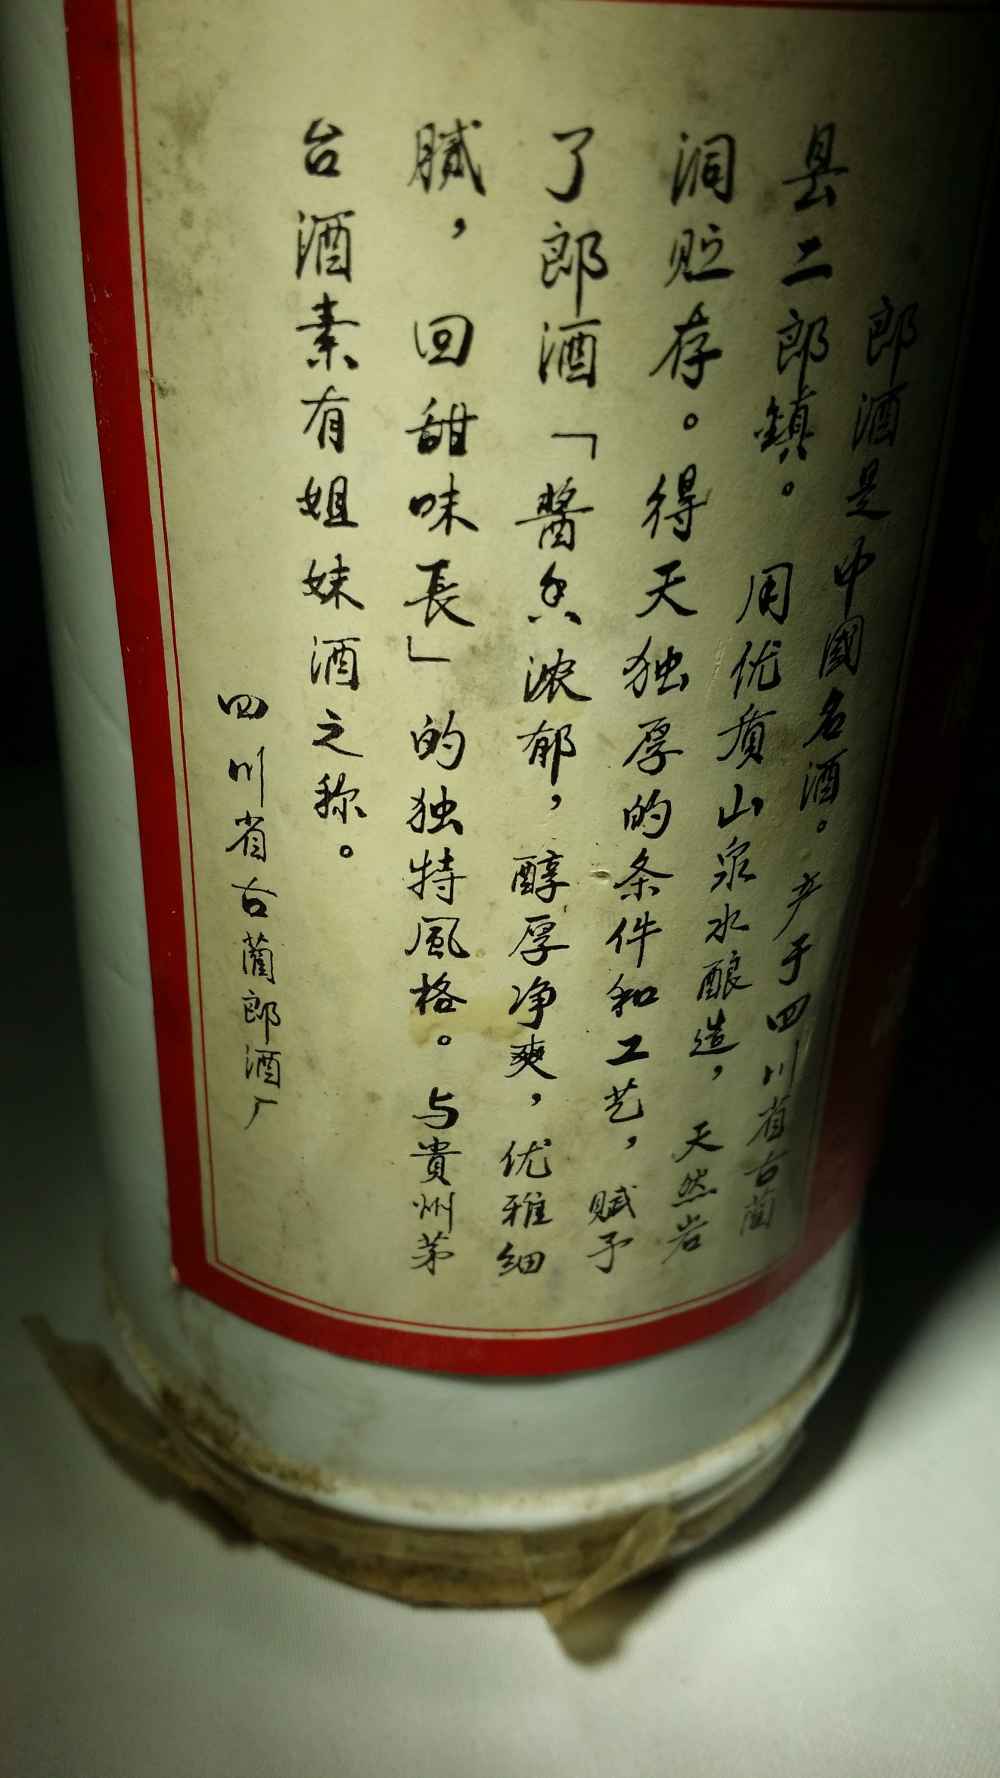 郎酒是中國名酒。产于四川省古蔺
县二郎鎮。用优质山泉水酿造，天然岩
洞贮存。得天独厚的条件和工艺，赋予
了郎酒「醬香浓郁，醇厚净爽，优雅细
腻，回甜味長」的独特風格。与貴州茅
台酒素有姐妹酒之称。
四川省古藺郎酒厂